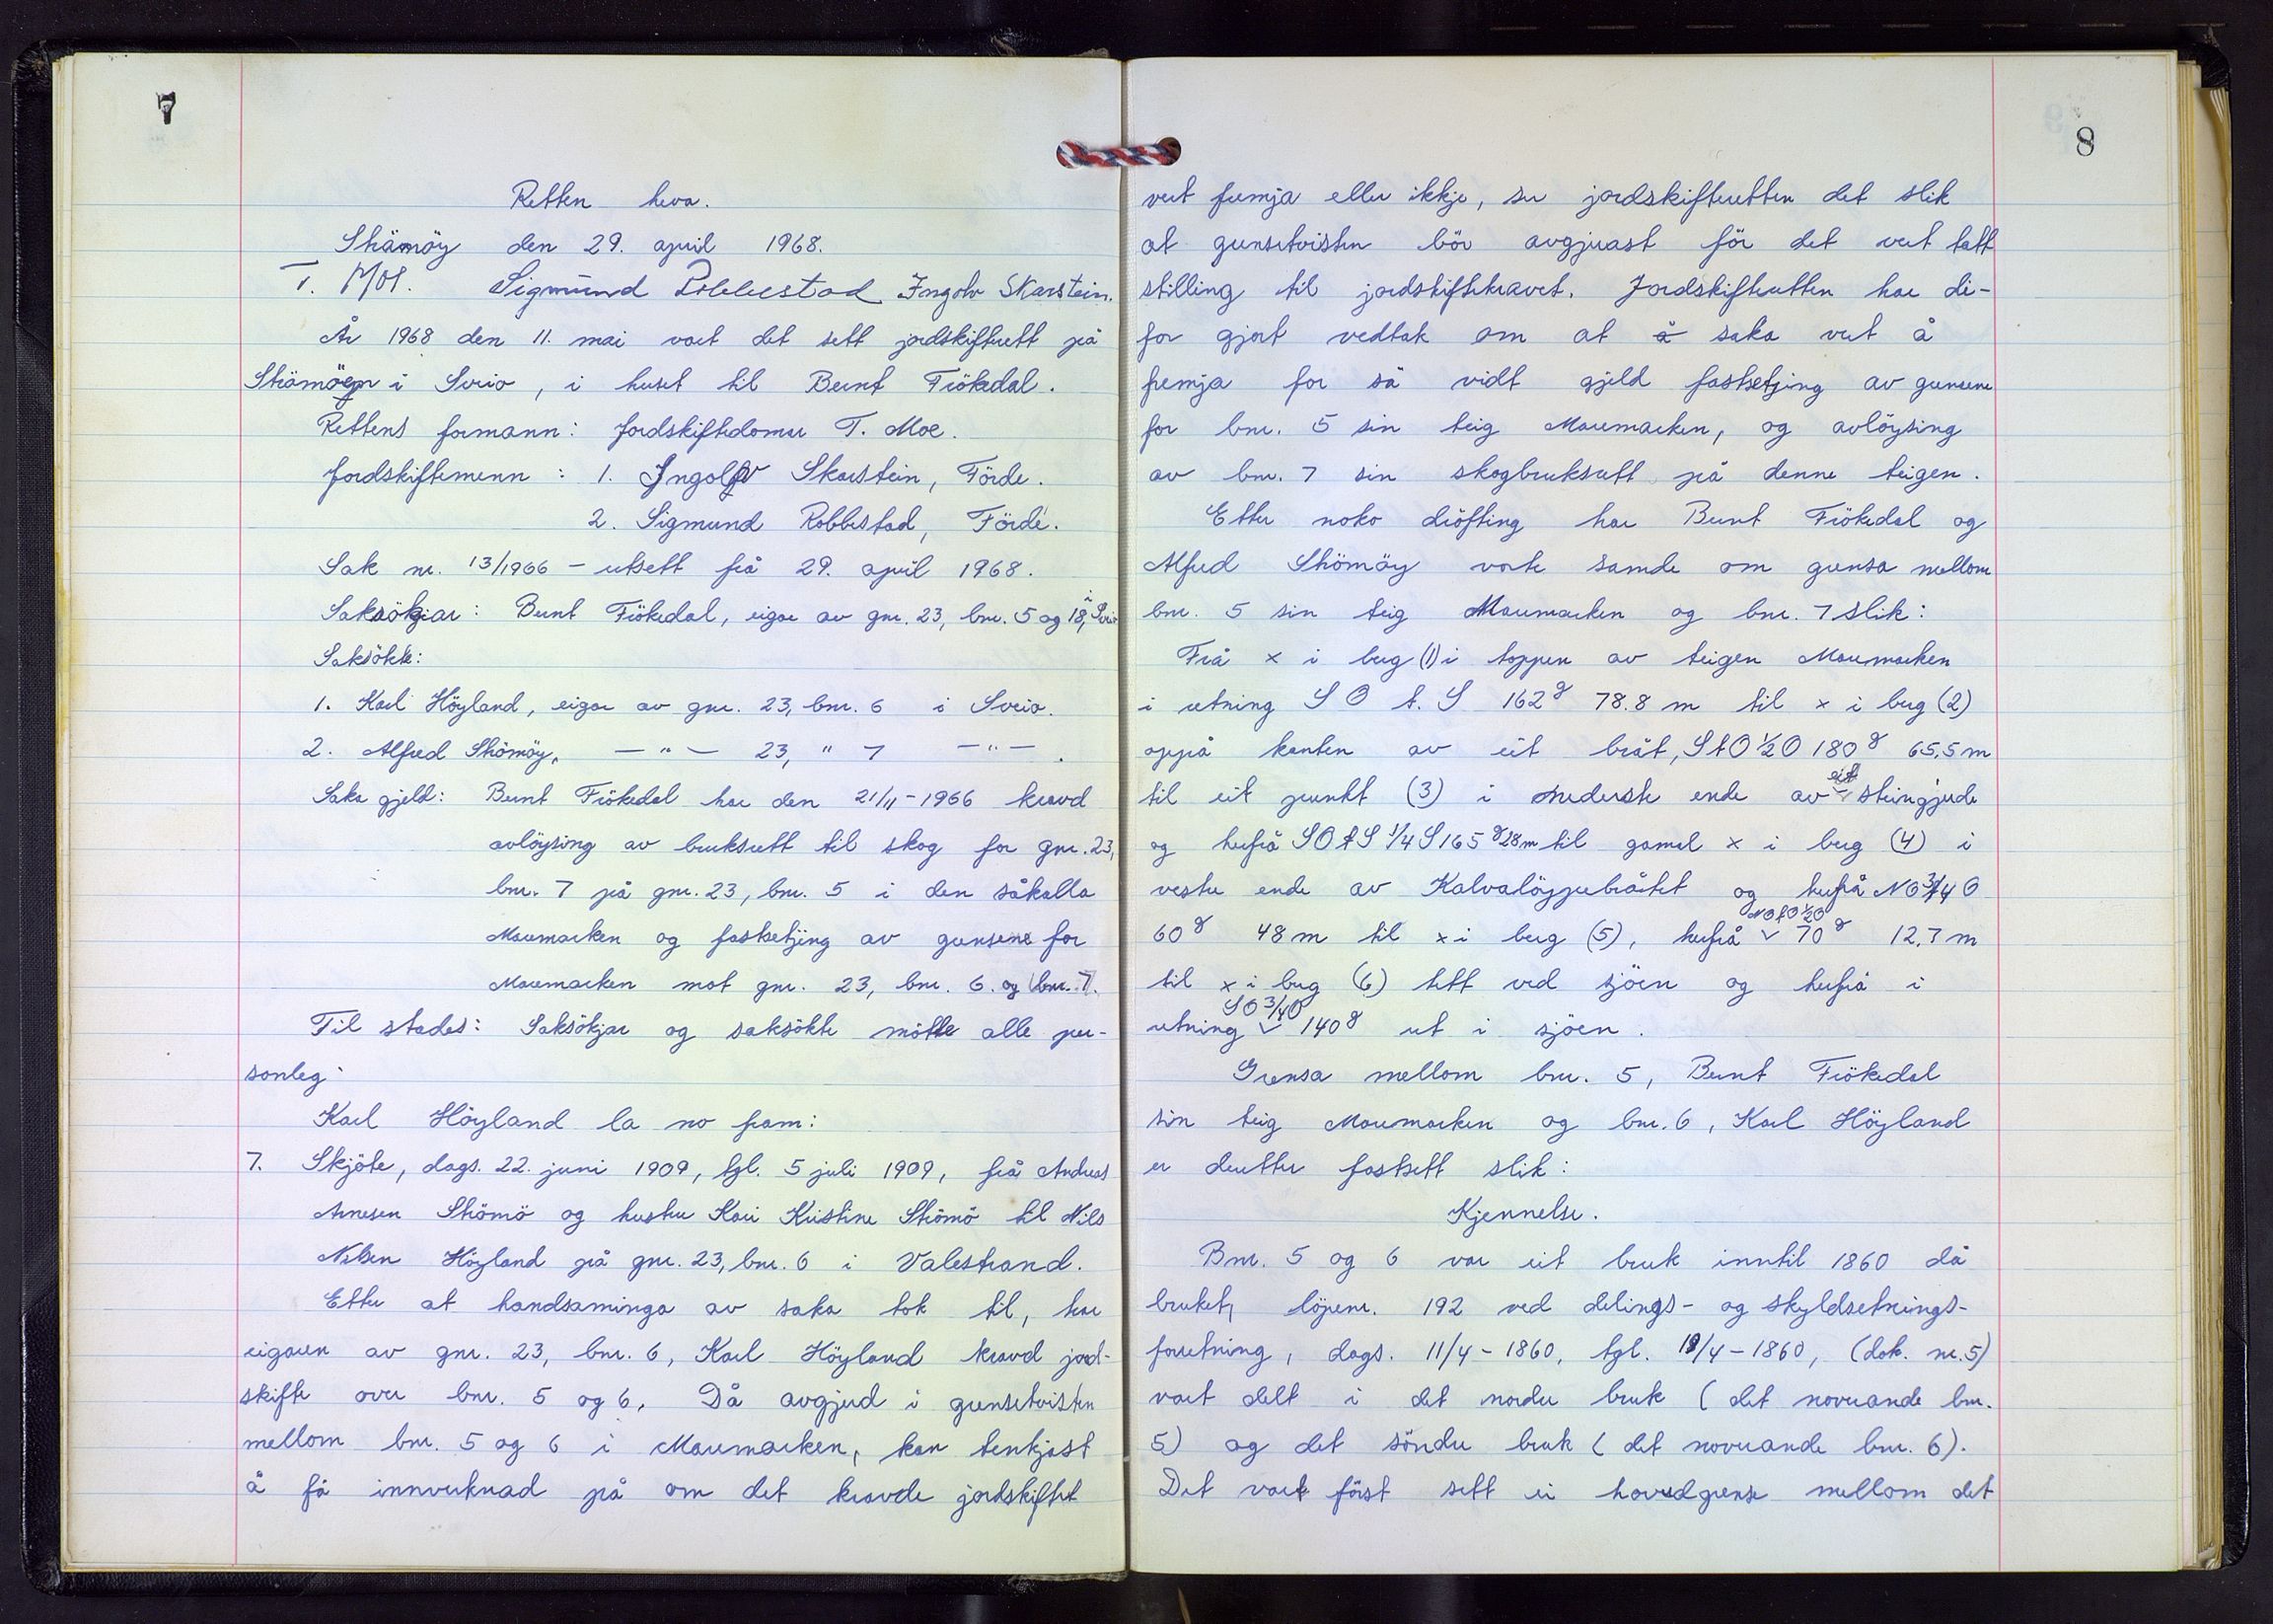 7
Retten heva.
Strömöy den 29. april 1968.
T. Moe. Sigmund Robbestad Ingolv Skarstein.
År 1968 den 11. mai vart det sett jordskifterett på
Strömöy i Sveio, i huset til Bernt Frökedal.
Rettens formann: Jordskiftedomar T. Moe.
Jordskiftemenn: 1. Ingolv Skarstein, Förde.
2. Sigmund Robbestad, Förde.
Sak nr. 13/1966 - utsett frå 29. april 1968.
Saksökjar: Bernt Frökedal, eigar av gnr. 23, bnr. 5 og 18, i Sveio
Saksökte:
1. Karl Höyland, eigar av gnr. 23, bnr. 6 i Sveio.
2. Alfred Strömöy, — " — 23, " 7 — " — .
Saka gjeld: Bernt Frökedal har den 21/11-1966 kravd
avlöysing av bruksrett til skog for gnr. 23,
bnr. 7 på gnr. 23, bnr. 5 i den såkalla
Maremarken og fastsetjing av grensene for
Maremarken mot gnr. 23, bnr. 6. og bnr. 7.
Til stades: Saksökjar og saksökte mötte alle per-
sonleg.
Karl Höyland la no fram:
7. Skjöte, dags. 22. juni 1909, tgl. 5 juli 1909, frå Andreas
Arnesen Strömö og hustru Kari Kristine Strömö til Nils
Nilsen Höyland på gnr. 23, bnr. 6 i Valestrand.
Etter at handsaminga av saka tok til, har
eigaren av gnr. 23, bnr. 6, Karl Höyland kravd jord-
skifte over bnr. 5 og 6. Då avgjerd i grensetvisten
mellom bnr. 5 og 6 i Maremarken, kan tenkjast
å få innverknad på om det kravde jordskiftet
8
vert fremja eller ikkje, ser jordskifteretten det slik
at grensetvisten bör avgjerast för det vert tatt
stilling til jordskiftekravet. Jordskifteretten har di-
for gjort vedtak om at å saka vert å
fremja for så vidt gjeld fastsetjing av grensene
for bnr. 5 sin teig Maremarken, og avlöysing
av bnr. 7 sin skogbruksrett på denne teigen.
Etter noko dröfting har Bernt Frökedal og
Alfred Strömöy vorte samde om grensa mellom
bnr. 5 sin teig Maremarken og bnr. 7 slik:
Frå x i berg (1) i toppen av teigen Maremarken
i retning S O t. S 162g 78.8 m til x i berg (2)
oppå kanten av eit bråt, S t O 1/2 O 180g 65,5 m
til eit punkt (3) i nederste ende av eit steingjerde
og herfrå S O t S 1/4 S 165g 28m til gamal x i berg (4) i
vestre ende av Kalvalöypebråtet og herfrå N O 3/4 O
60g 48 m til x i berg (5), herfrå NOtO 1/2 O 70g 12,7 m
til x i berg (6) tett ved sjöen og herfrå i
retning SO 3/4 O 140g ut i sjöen.
Grensa mellom bnr. 5, Bernt Frökedal
sin teig Maremarken og bnr. 6, Karl Höyland
er deretter fastsett slik:
Kjennelse.
Bnr. 5 og 6 var eit bruk inntil 1860 då
bruket, löpenr. 192 ved delings- og skyldsetnings-
forretning, dags. 11/4-1860, tgl. 18/4-1860, (dok. nr. 5)
vart delt i det nordre bruk (det noverande bnr.
5) og det söndre bruk (det noverande bnr. 6).
Det vart först sett ei hovudgrense mellom det